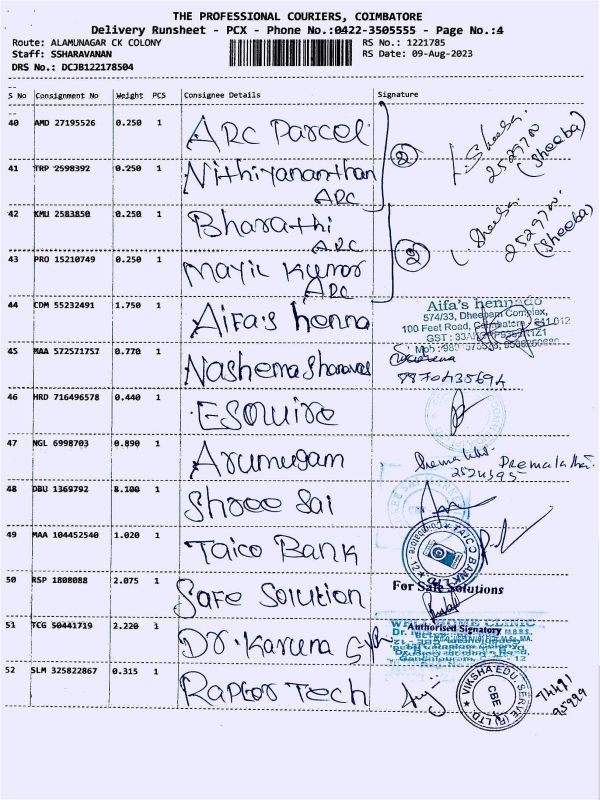 THE PROFESSIONAL COURIERS, COIMBATORE
Delivery Runsheet - PCX - Phone No.:0422-3505555 - Page No.:4
Route: ALAMUNAGAR CK COLONY RS No.: 1221785
Staff: SSHARAVANAN RS Date: 09-Aug-2023
DRS No.: DCJB122178504
S No Consignment No Weight PCS Consignee Details Signature
40 AMD 27195526 0.250 1 ARC Parcel
2 Sheeba 2529700 (Sheeba)
41 TRP 2598392 0.250 1 Nithiyananthan
ARC
42 KMU 2583850 0.250 1 Bharathi
ARC
2 Sheeba 2529700 (Sheeba)
43 PRO 15210749 0.250 1 Mayil Kumar
ARC
44 CDM 55232491 1.750 1 Aifa's henna
Aifa's henna
574/33, Dheepam Complex,
100 Feet Road, Coimbatore 641 012
GST :
Mob :
45 MAA 572571757 0.770 1 Nashema Sharavas
9870435694
46 HRD 716496578 0.440 1 ESQUIRE
47 NGL 6998703 0.890 1 Arumugam
Premalatha
48 DBU 1369792 8.100 1 Shree Sai
49 MAA 104452540 1.020 1 Taico Bank
TAICO BANK LTD
50 RSP 1808088 2.075 1 Safe Solution
For Safe Solutions
Authorised Signatory
51 TCG 50441719 2.220 1 Dr. Karuna
CLINIC
Dr. M.B.B.S.,
52 SLM 325822867 0.315 1 Raptor Tech
VIKSHA EDU. SERVE (P) LTD.
CBE
74491
95999